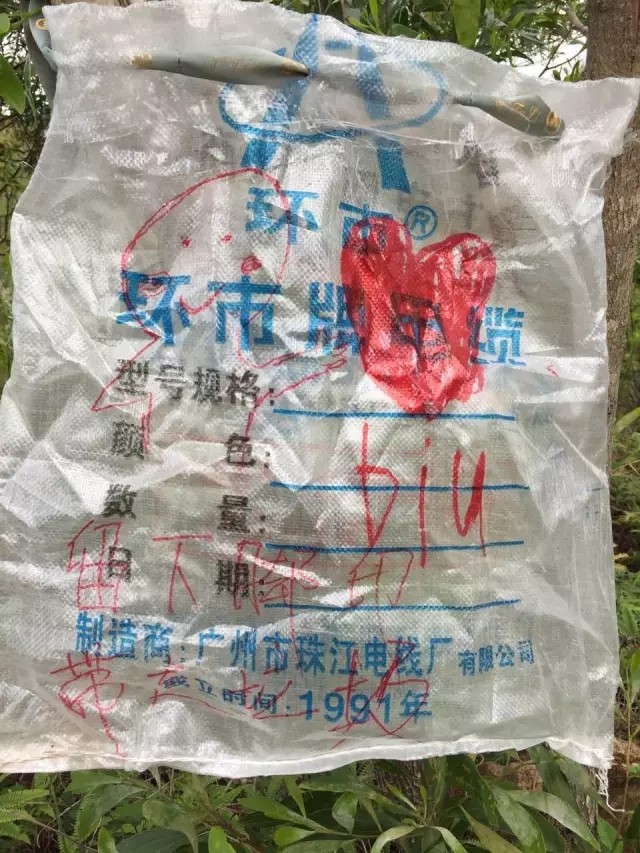 环市®
环市牌电缆
型号规格:
颜色:
biu
数量:
日期:
留下脚印
制造商:广州市珠江电线厂有限公司
带走垃圾
成立时间:1991年